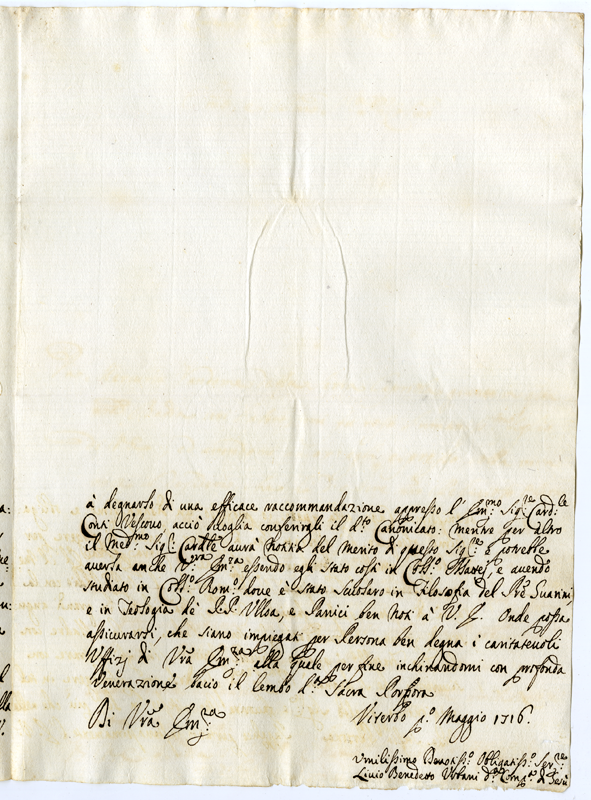 à degnarlo di una efficace raccommandazione appresso l'Em:mo Sig:re Card:le
Conti Vescovo, acciò voglia conferirgli il d:to Canonicato: mentre per altro
il Med:mo Sig:r Card:le avrà notitia del merito di questo Sig:re e potrebbe
averla anche V:ra Em:za essendo egli stato costà in Coll:o e avendo
studiato in Coll:o Rom:o dove è stato Scolaro in Filosofia del Pre Guarini,
e in Teologia de' P.P. Ulloa, e Panici ben noti à V. E. Onde possa
assicurarsi, che siano impiegati per Persona ben degna i caritatevoli
Uffizj di Vra Em:za alla quale per fine inchinandomi con profonda
Venerazione bacio il lembo d:la Sacra Porpora
Di Vra Em:za Viterbo p:o Maggio 1716.
Umilissimo Devotiss:o Obligatiss:o Ser:re
Livio Benedetto Urbani d:a Comp:a di Gesù